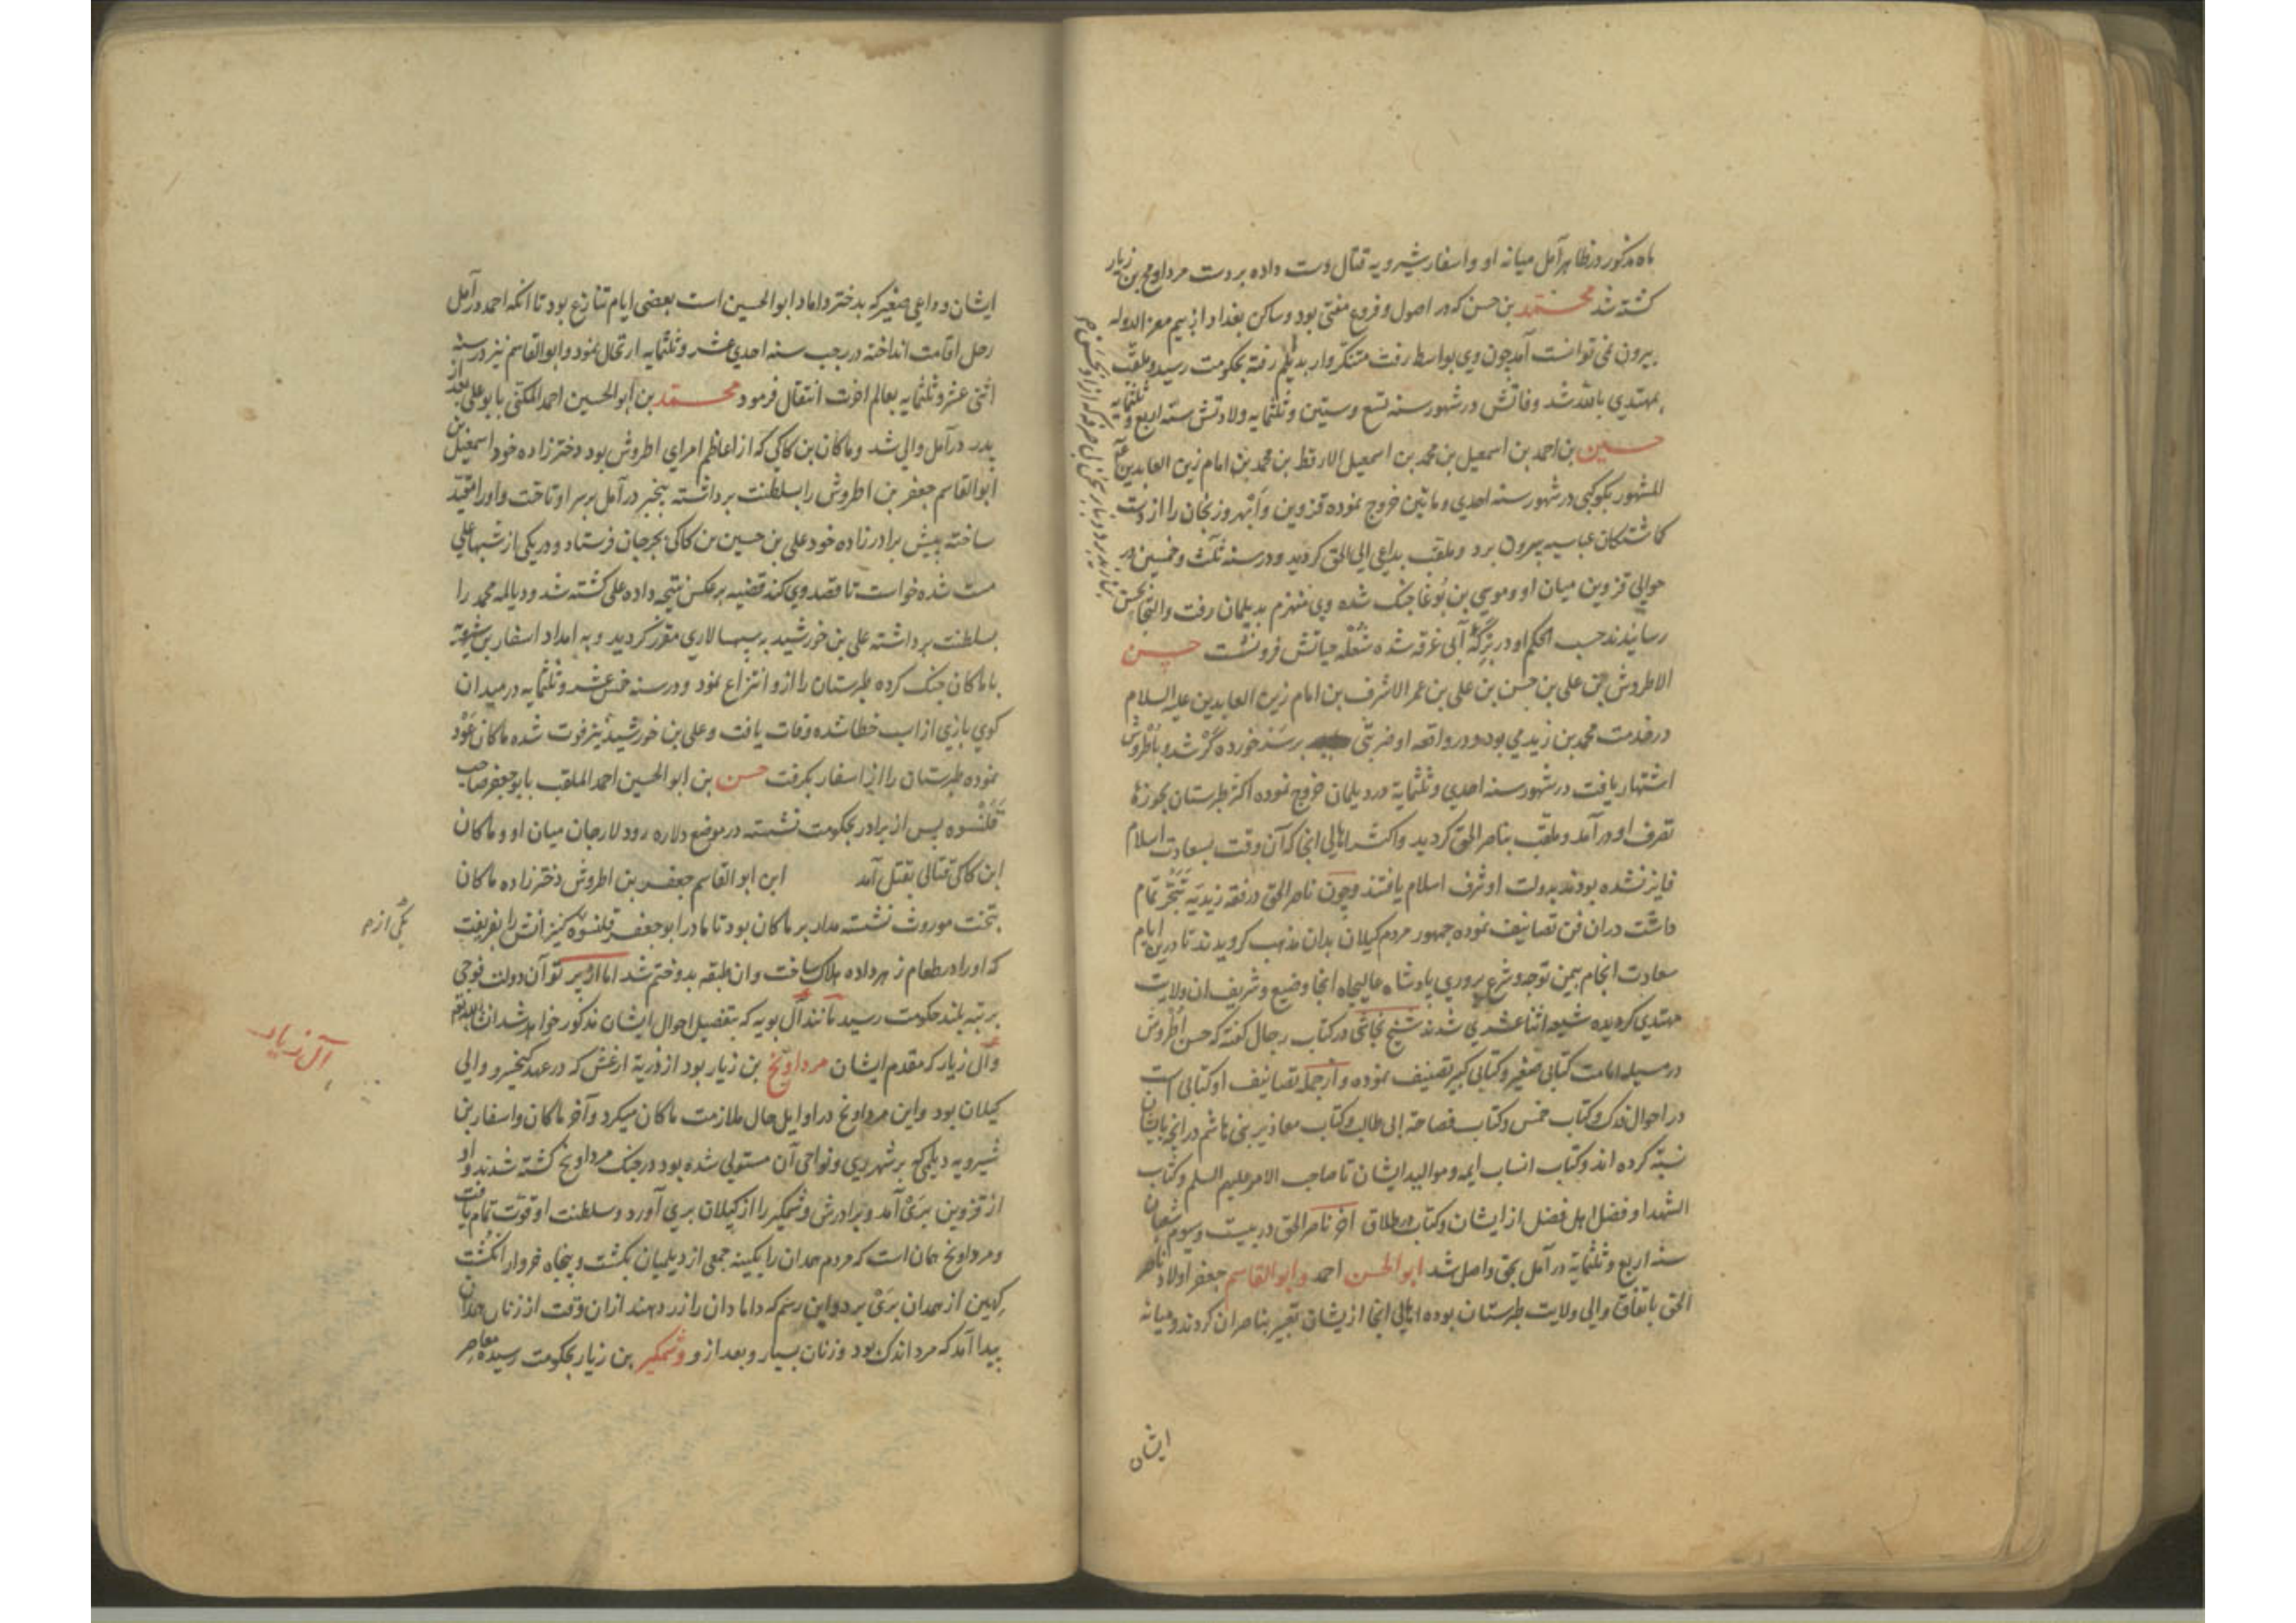 ماه مذکور در ظاهر آمل میانه او و اسفار شیرویه قتال دست داده بر دست مرداویج بن زیار
کشته شد محمد بن حسن که در اصول و فروع مفتی بود و ساکن بغداد از بیم معز الدوله
بیرون نمی توانست آمد چون وی بواسط رفت متنکر وار بدیلم رفته بحکومت رسید و ملقب
بمهتدی بالله شد وفاتش در شهور سنه تسع و ستین و ثلثمایه ولادتش سنه اربع و ثلثمایه
حسین بن احمد بن اسمعیل بن محمد بن اسمعیل الارقط بن محمد بن امام زین العابدین
المشهور بکوکبی در شهور سنه احدی و ماتین خروج نموده قزوین و ابهر و زنجان را از دست
کماشتکان عباسیه بیرون برد و ملقب بداعی الی الحق کردید و در سنه ثلث و خمسین در
حوالی قزوین میان او و موسی بن بوغا جنک شده وی منهزم بدیلمان رفت و التجا بحسن
رسانیدند حسب الحکم او در برکه آبی غرقه شده شعله حیاتش فرو نشت حسن
الاطروش بن علی بن حسن بن علی بن عمر الاشرف بن امام زین العابدین علیه السلام
در خدمت محمد بن زید می بود و در واقعه او ضربتی بر سر خورده کر شد و باطروش
اشتهار یافت در شهور سنه احدی و ثلثمایة در دیلمان خروج نموده اکثر طبرستان بحوزهٔ
تصرف او در آمد و ملقب بناصر الحق کردید و اکثر اهالی انجا که آن وقت بسعادت اسلام
فایز نشده بودند بدولت او شرف اسلام یافتند و چون ناصر الحق در فقه زیدیه تبحر تمام
داشت در ان فن تصانیف نموده جمهور مردم کیلان بدان مذهب کرویدند تا درین ایام
سعادت انجام بیمن توجه و شرع پروری پادشاه عالیجاه انجا وضیع و شریف ان ولایت
مهتدی کردیده شیعه اثنا عشری شدند شیخ نجاشی در کتاب رجال کفته که حسن اطروش
در مسیله امامت کتابی صغیر و کتابی کبیر تصنیف نموده و از جمله تصانیف او کتابی است
در احوال فدک و کتاب خمس و کتاب فصاحة ابی طالب و کتاب معاذیر بنی هاشم در انچه بایشان
نسبة کرده اند و کتاب انساب ایمه و موالید ایشان تا صاحب الامر علیهم السلم و کتاب
الشهدا و فضل اهل فضل از ایشان و کتاب طلاق آخر ناصر الحق در بیست و سیوم شعبان
سنه اربع و ثلثمایة در آمل بحق واصل شد ابو الحسن احمد و ابو القاسم جعفر اولاد ناصر
الحق باتفاق والی ولایت طبرستان بوده اهالی انجا از یشان تعبیر بناصران کردند و میانه
ایشان
ایشان و داعی صغیر که بدختر داماد ابو الحسین است بعضی ایام تنازع بود تا انکه احمد در آمل
رحل اقامت انداخته در رجب سنه احدی عشر و ثلثمایه ارتحال نمود و ابو القاسم نیز در سنه
اثنی عشر و ثلثمایه بعالم آخرت انتقال فرمود محمد بن ابو الحسین احمد المکنی بابو علی بعد از
پدر در آمل والی شد و ماکان بن کاکی که از اعاظم امرای اطروش بود دختر زاده خود اسمعیل بن
ابو القاسم جعفر بن اطروش را بسلطنت برداشته بیخبر در آمل بر سر او تاخت و او را مقید
ساخته پیش برادر زاده خود علی بن حسین بن کاکی بجرجان فرستاد و در یکی از شبها علی
مست شده خواست تا قصد وی کند قضیه بر عکس نتیجه داده علی کشته شد و دیالمه محمد را
بسلطنت برداشته علی بن خورشید به سپهسالاری مقرر کردید و به امداد اسفار بن شیرویه
با ماکان جنک کرده طبرستان را ازو انتزاع نمود و در سنه خمس عشر و ثلثمایه در میدان
کوی بازی از اسب خطا شده وفات یافت و علی بن خورشید نیز فوت شده ماکان عود
نموده طبرستان را از اسفار بکرفت حسن بن ابو الحسین احمد الملقب بابو جعفر صاحب
قلنسوه پس از برادر بحکومت نشسته در موضع دلاره رود لارجان میان او و ماکان
ابن کاکی قتالی بقتل آمد ابن ابو القاسم جعفر بن اطروش دختر زاده ماکان
بتخت موروث نشسته مدار بر ماکان بود تا مادر ابو جعفر قلنسوه کنیزانش را بفریفت
یکی از
که او را در طعام زهر داده هلاک ساخت و ان طبقه بدو ختم شد اما از پرتو آن دولت فوجی
برتبه بلند حکومت رسیدند مانند آل بویه که بتفصیل احوال ایشان مذکور خواهد شد
آل زیار
و آل زیار که مقدم ایشان مرداویج بن زیار بود از ذریة ارغش که در عهد کیخسرو والی
کیلان بود و این مرداویج در اوایل حال ملازمت ماکان میکرد و آخر ماکان و اسفار بن
شیرویه دیلمی که بر شهر ری و نواحی آن مستولی شده بود در جنک مرداویج کشته شدند و او
از قزوین بری آمد و برادرش وشمکیر را از کیلان بری آورد و سلطنت او قوت تمام یافت
و مرداویج همان است که مردم همدان را بکینه جمعی از دیلمیان بکشت و پنجاه خروار انکشت
کهین از همدان بری برد و این رسم که دامادان را زر دهند ازان وقت از زنان همدان
پیدا آمد که مرد اندک بود و زنان بسیار و بعد ازو وشمکیر بن زیار بحکومت رسیده معاصر